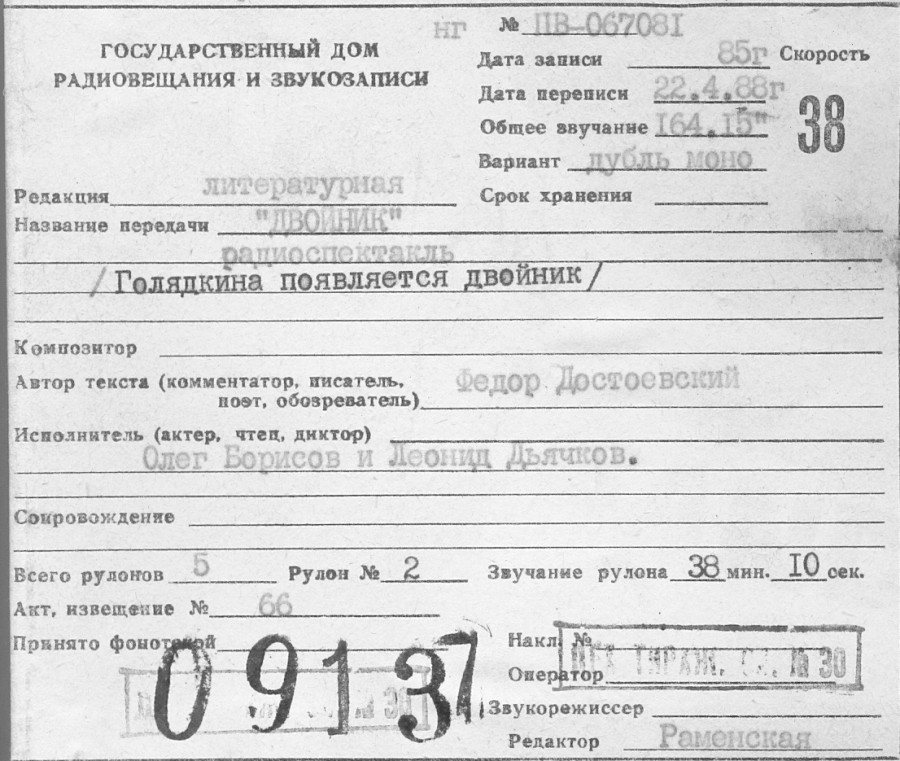 нг № ПВ-067081
ГОСУДАРСТВЕННЫЙ ДОМ
РАДИОВЕЩАНИЯ И ЗВУКОЗАПИСИ
Дата записи 85г Скорость
Дата переписи 22.4.88г
38
Общее звучание 164.15"
Вариант дубль моно
Редакция литературная
Срок хранения
Название передачи "ДВОЙНИК"
радиоспектакль
/Голядкина появляется двойник/
Композитор
Автор текста (комментатор, писатель,
поэт, обозреватель) Федор Достоевский
Исполнитель (актер, чтец, диктор)
Олег Борисов и Леонид Дьячков.
Сопровождение
Всего рулонов 5 Рулон № 2 Звучание рулона 38 мин. 10 сек.
Акт, извещение № 66
Принято фонотекой
Накл. №
ТИРАЖ. № 30
Оператор
09137
Звукорежиссер
Редактор Раменская